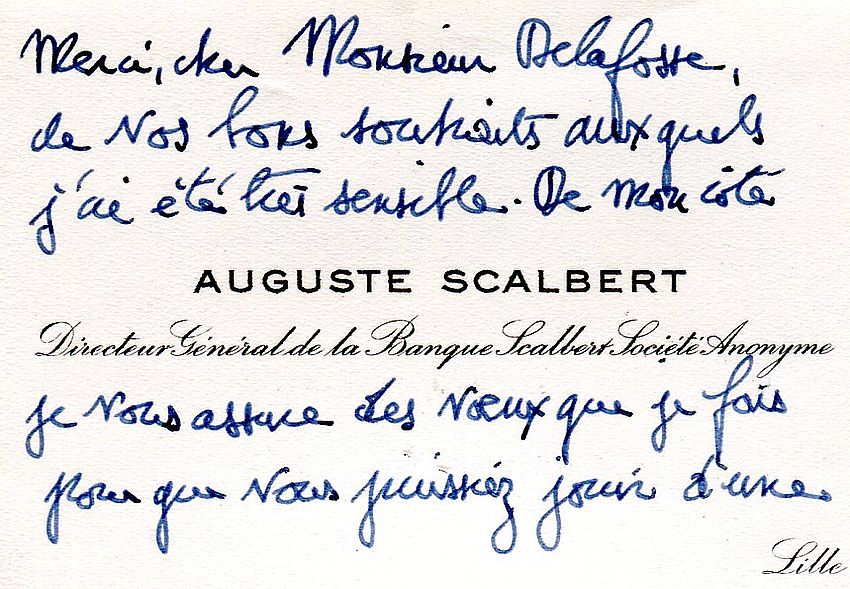 Merci, cher Monsieur Delafosse,
de vos bons souhaits auxquels
j'ai été très sensible. De mon côté
AUGUSTE SCALBERT
Directeur Général de la Banque Scalbert Société Anonyme
je vous assure des vœux que je fais
pour que vous puissiez jouir d'une
Lille